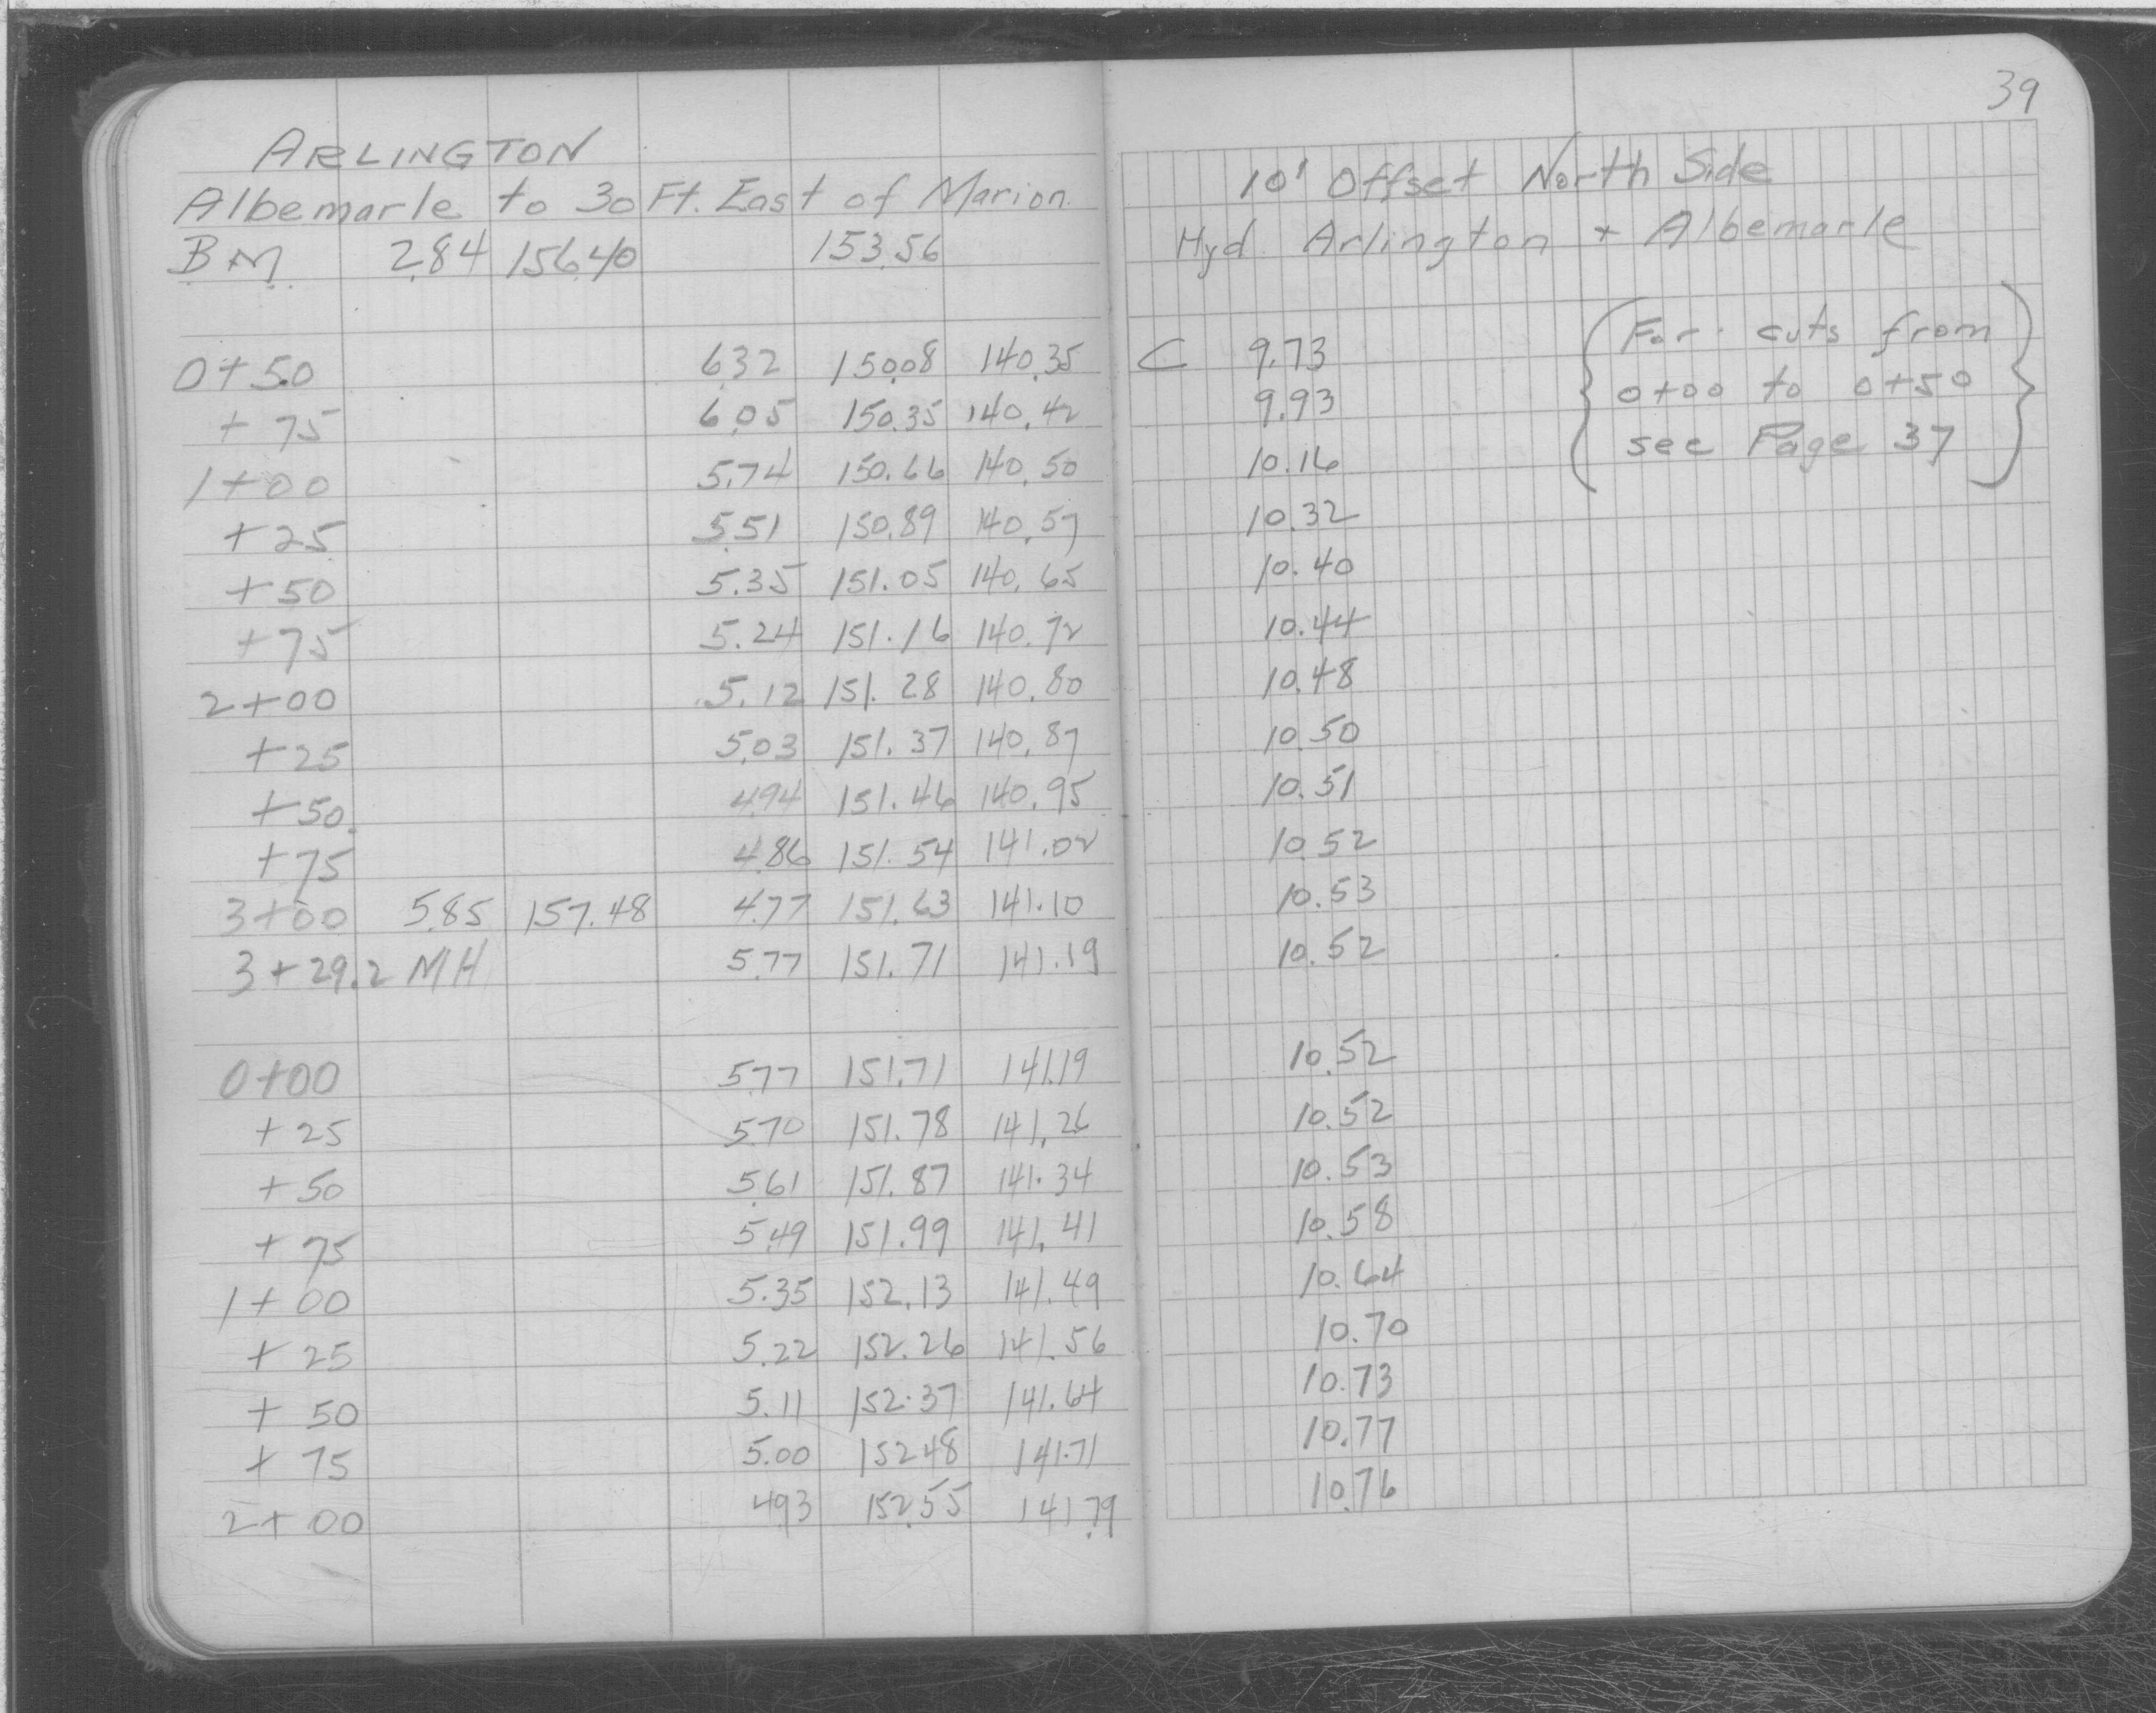 39
ARLINGTON
Albemarle to 30 Ft. East of Marion.
10' Offset North Side
BM 2.84 156.40 153.56
Hyd. Arlington + Albemarle
0+50 6.32 150.08 140.35 C 9.73
+75 6.05 150.35 140.42 9.93
1+00 5.74 150.66 140.50 10.16
(For cuts from
0+00 to 0+50
see Page 37)
+25 5.51 150.89 140.57 10.32
+50 5.35 151.05 140.65 10.40
+75 5.24 151.16 140.72 10.44
2+00 5.12 151.28 140.80 10.48
+25 5.03 151.37 140.87 10.50
+50 4.94 151.46 140.95 10.51
+75 4.86 151.54 141.02 10.52
3+00 5.85 157.48 4.77 151.63 141.10 10.53
3+29.2 MH 5.77 151.71 141.19 10.52
0+00 5.77 151.71 141.19 10.52
+25 5.70 151.78 141.26 10.52
+50 5.61 151.87 141.34 10.53
+75 5.49 151.99 141.41 10.58
1+00 5.35 152.13 141.49 10.64
+25 5.22 152.26 141.56 10.70
+50 5.11 152.37 141.64 10.73
+75 5.00 152.48 141.71 10.77
2+00 4.93 152.55 141.79 10.76